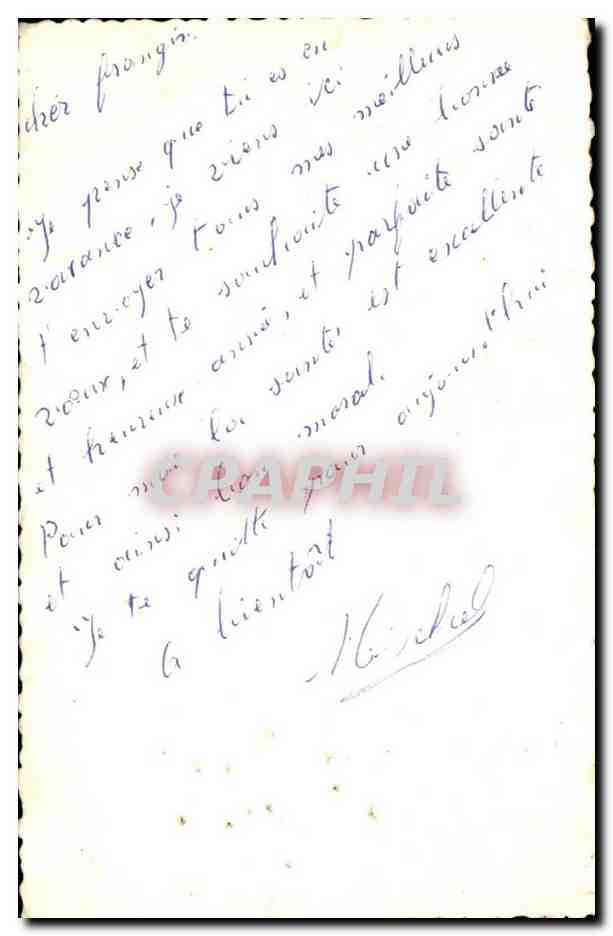 cher frangin.
Je pense que tu es en
vacance, je viens ici
t'envoyer tous mes meilleurs
vœux, et te souhaite une bonne
et heureuse année, et parfaite santé
Pour moi la santé est excellente
et ainsi bon moral.
Je te quitte pour aujourd'hui
a bientôt
Michel
CPAPHIL